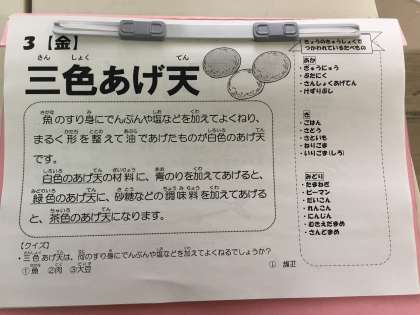 3【金】
三色あげ天
魚のすり身にでんぷんや塩などを加えてよくねり、
まるく形を整えて油であげたものが白色のあげ天
です。
白色のあげ天の材料に、青のりを加えてあげると、
緑色のあげ天に、砂糖などの調味料を加えてあげる
と、茶色のあげ天になります。
【クイズ】
・三色あげ天は、何のすり身にでんぷんや塩などを加えてよくねるでしょうか？
①魚 ②肉 ③大豆
きょうのきゅうしょくで
つかわれているたべもの
あか
・ぎゅうにゅう
・ぶたにく
・さんしょくあげてん
・けずりぶし
き
・ごはん
・さとう
・さといも
・ねりごま
・いりごま(しろ)
みどり
・たまねぎ
・ピーマン
・だいこん
・れんこん
・にんじん
・むきえだまめ
・さんどまめ